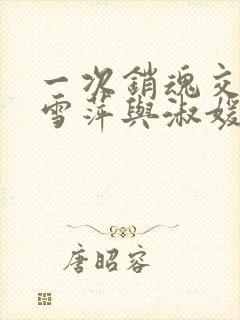 一次銷魂交
雪萍與淑媛
唐昭容